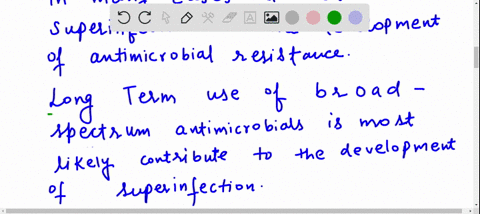 of antimicrobial resistance.
Long Term use of broad-
spectrum antimicrobials is most
likely contribute to the development
of superinfection.